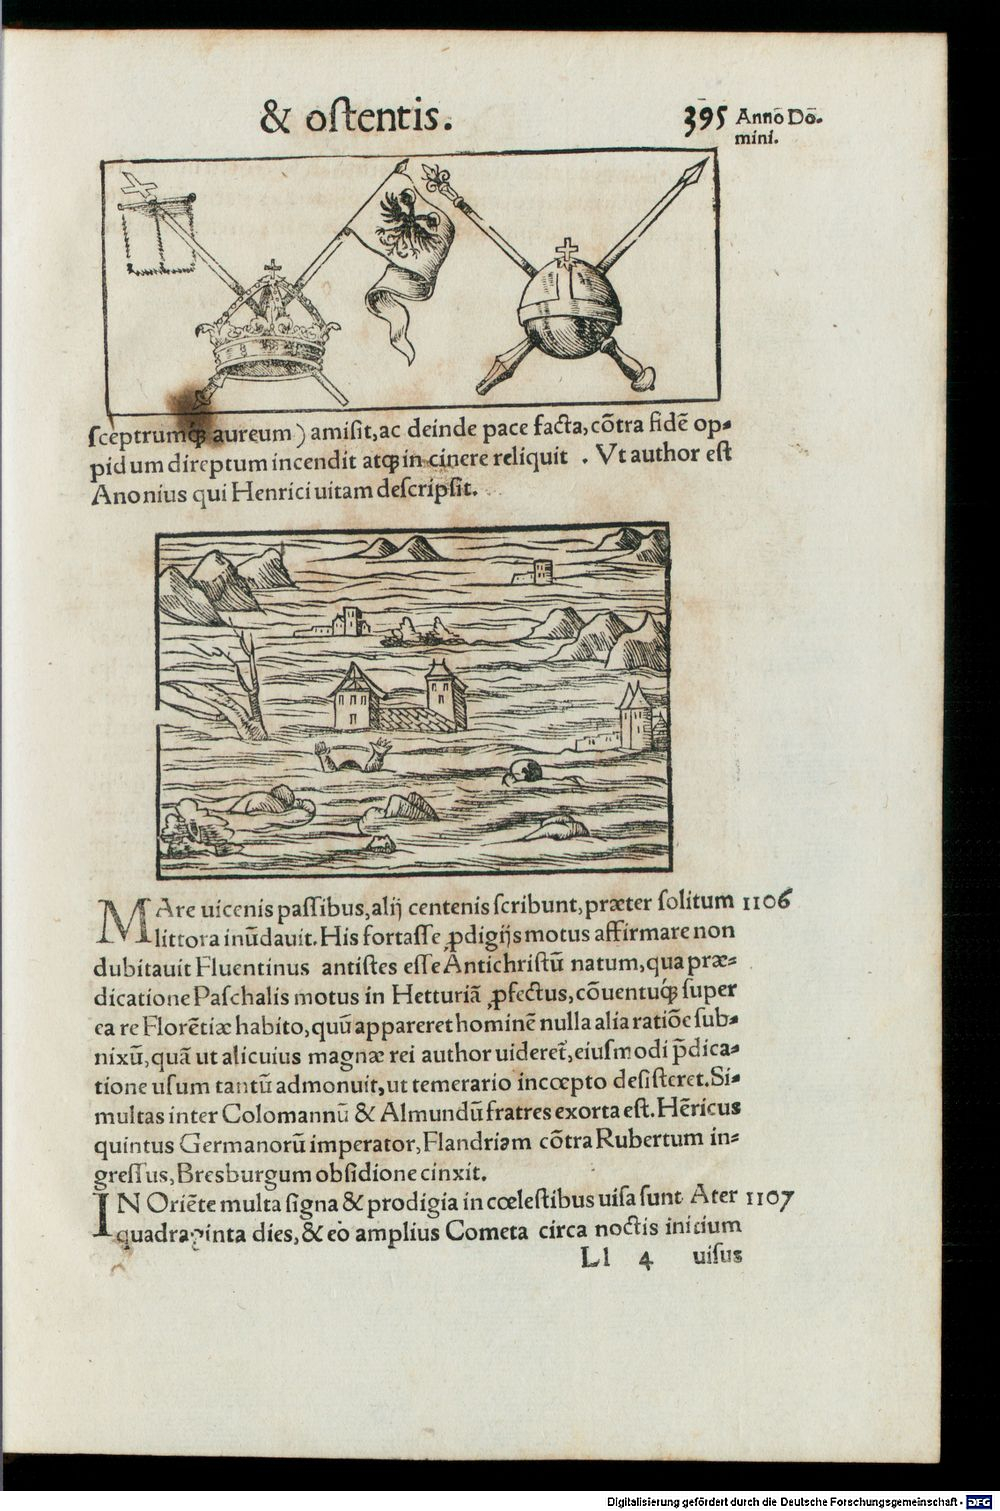 & oſtentis.
395 Annō Dō.
mini.
ſceptrumq́ꝫ aureum) amiſit, ac deinde pace facta, cōtra fidē op⸗
pidum direptum incendit atqꝫ in cinere reliquit . Vt author eſt
Anonius qui Henrici uitam deſcripſit.
MAre uicenis paſſibus, alij centenis ſcribunt, præter ſolitum 1106
littora inūdauit. His fortaſſe ꝓdigijs motus affirmare non
dubitauit Fluentinus antiſtes eſſe Antichriſtū natum, qua præ⸗
dicatione Paſchalis motus in Hetturiā ꝓfectus, cōuentuq́ꝫ ſuper
ea re Florētiæ habito, quū appareret hominē nulla alia ratiōe ſub⸗
nixū, quā ut alicuius magnæ rei author uideret̃, eiuſmodi p̄dica⸗
tione uſum tantū admonuit, ut temerario incœpto deſiſteret. Si⸗
multas inter Colomannū & Almundū fratres exorta eſt. Hēricus
quintus Germanorū imperator, Flandriam cōtra Rubertum in⸗
greſſus, Bresburgum obſidione cinxit.
IN Oriēte multa ſigna & prodigia in cœleſtibus uiſa ſunt Ater 1107
quadraginta dies, & eò amplius Cometa circa noctis initium
Ll 4 uiſus
Digitalisierung gefördert durch die Deutsche Forschungsgemeinschaft - DFG